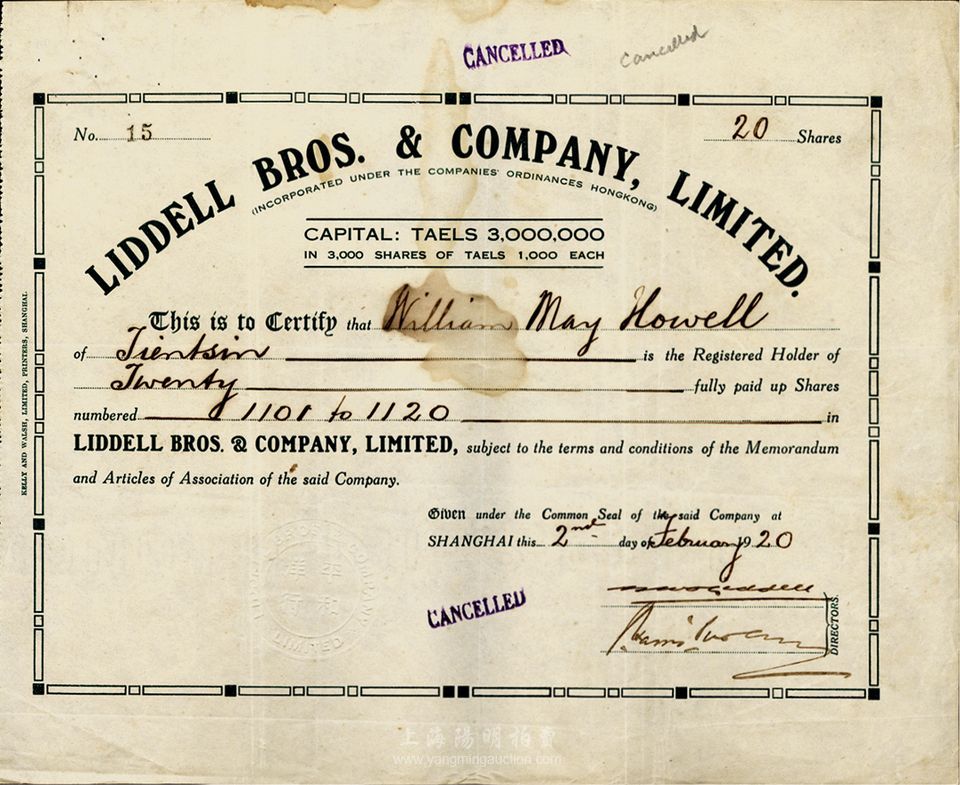 CANCELLED
Cancelled
No. 15
20 Shares
LIDDELL BROS. & COMPANY, LIMITED.
(INCORPORATED UNDER THE COMPANIES' ORDINANCES HONGKONG)
CAPITAL: TAELS 3,000,000
IN 3,000 SHARES OF TAELS 1,000 EACH
This is to Certify that William May Howell
of Tientsin is the Registered Holder of
Twenty fully paid up Shares
numbered 1101 to 1120 in
LIDDELL BROS. & COMPANY, LIMITED, subject to the terms and conditions of the Memorandum
and Articles of Association of the said Company.
Given under the Common Seal of the said Company at
SHANGHAI this 2nd day of February 1920
CANCELLED
DIRECTORS.
LIMITED
平和
KELLY AND WALSH, LIMITED, PRINTERS, SHANGHAI.
上海陽明拍賣
www.yangmingauction.com